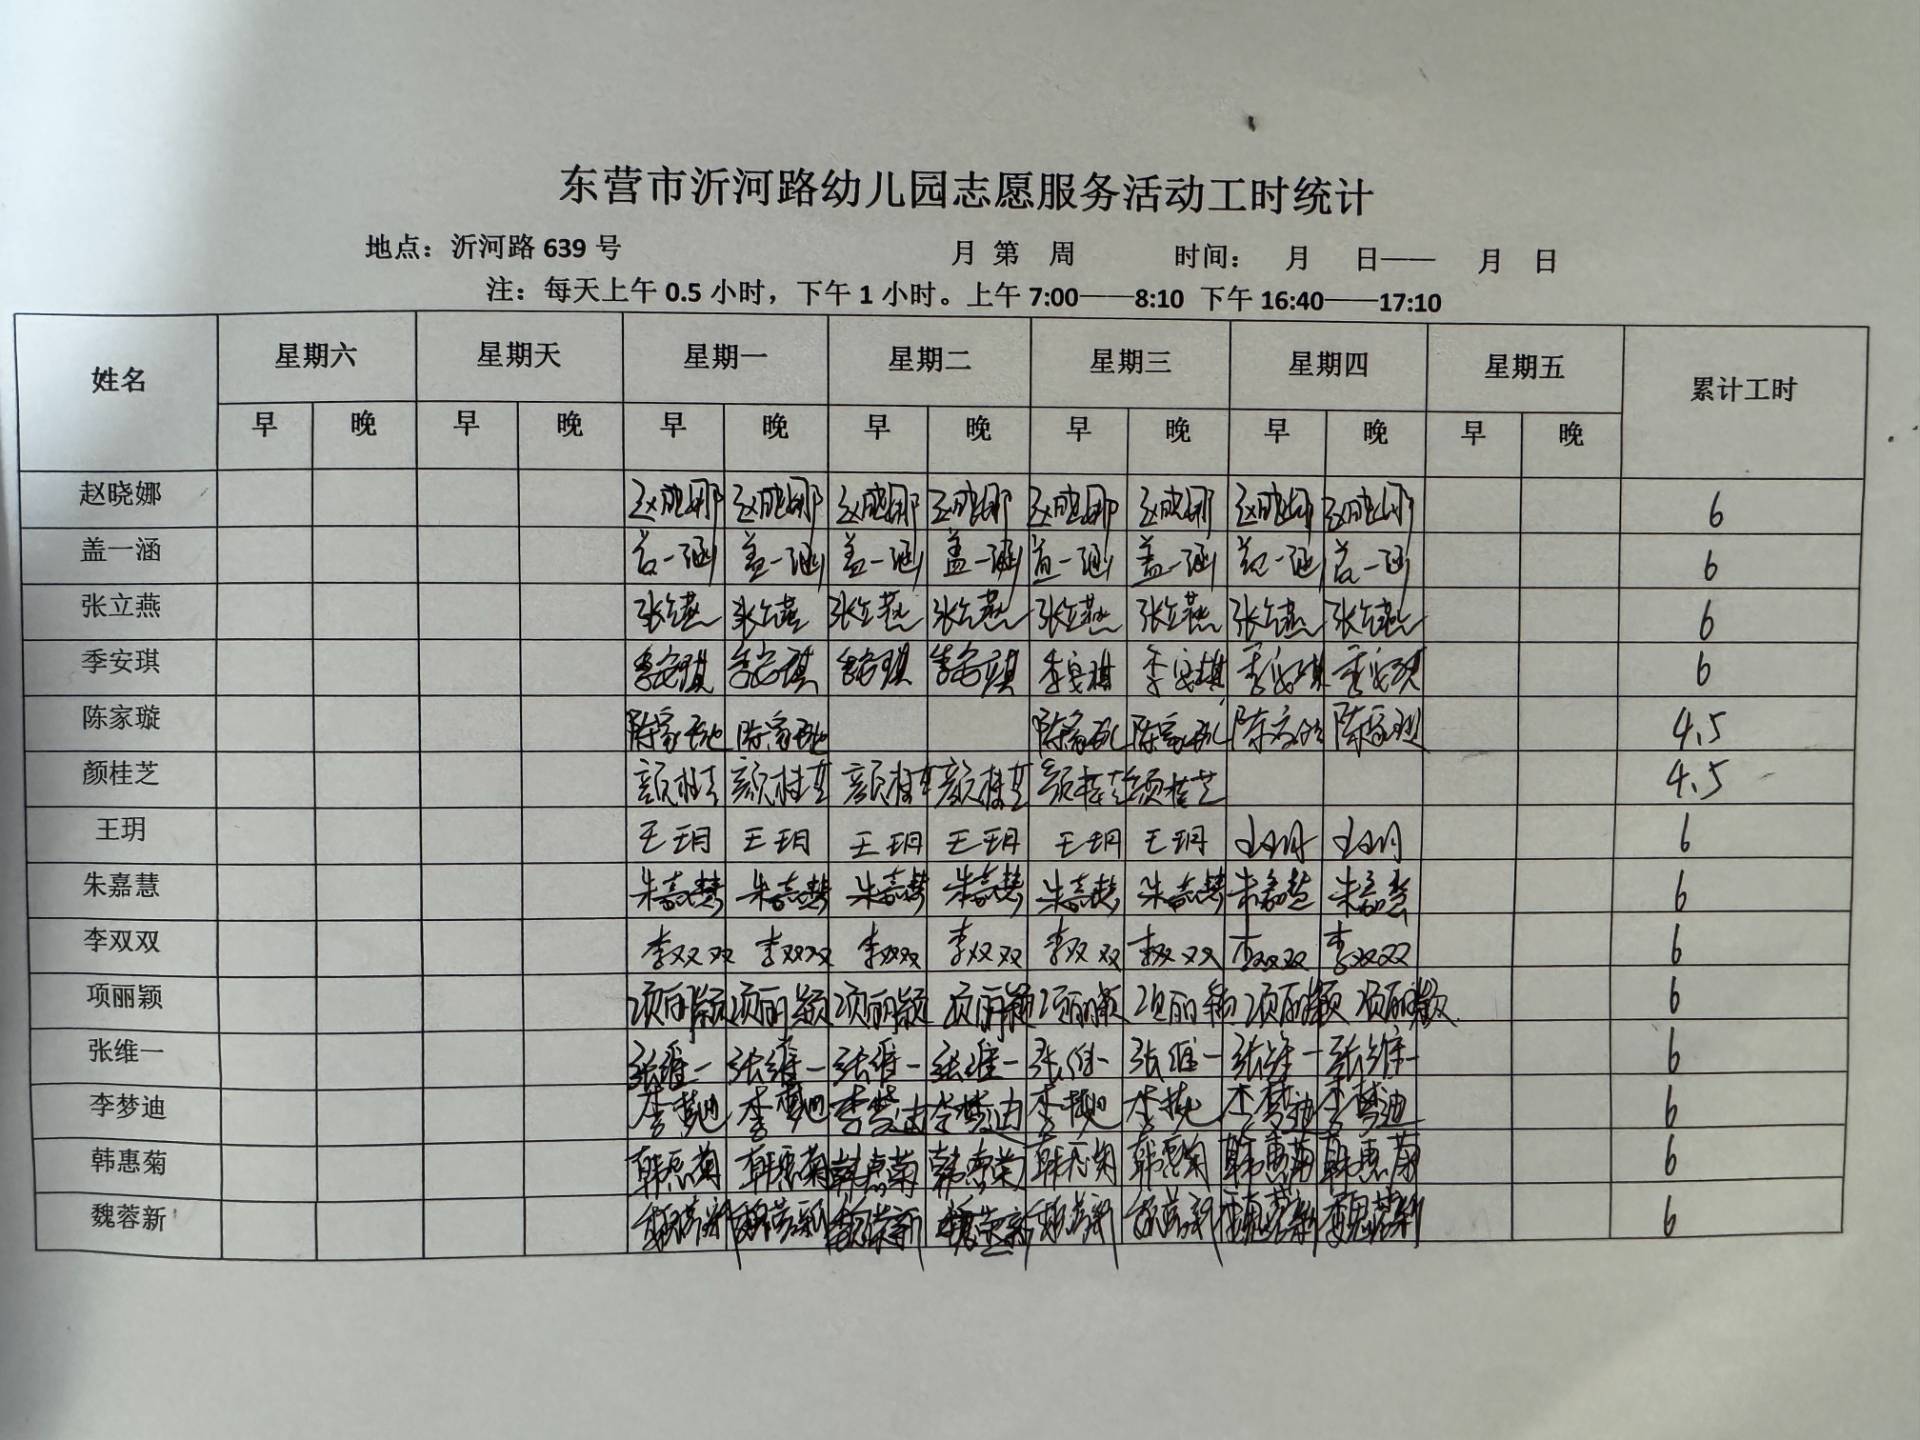 东营市沂河路幼儿园志愿服务活动工时统计
地点：沂河路 639 号 月 第 周 时间： 月 日—— 月 日
注：每天上午 0.5 小时，下午 1 小时。上午 7:00——8:10 下午 16:40——17:10
姓名 星期六 星期天 星期一 星期二 星期三 星期四 星期五 累计工时
早 晚 早 晚 早 晚 早 晚 早 晚 早 晚 早 晚
赵晓娜 赵晓娜 赵晓娜 赵晓娜 赵晓娜 赵晓娜 赵晓娜 赵晓娜 赵晓娜 6
盖一涵 盖一涵 盖一涵 盖一涵 盖一涵 盖一涵 盖一涵 盖一涵 盖一涵 6
张立燕 张立燕 张立燕 张立燕 张立燕 张立燕 张立燕 张立燕 张立燕 6
季安琪 季安琪 季安琪 季安琪 季安琪 季安琪 季安琪 季安琪 季安琪 6
陈家璇 陈家璇 陈家璇 陈家璇 陈家璇 陈家璇 陈家璇 4.5
颜桂芝 颜桂芝 颜桂芝 颜桂芝 颜桂芝 颜桂芝 颜桂芝 4.5
王玥 王玥 王玥 王玥 王玥 王玥 王玥 王玥 王玥 6
朱嘉慧 朱嘉慧 朱嘉慧 朱嘉慧 朱嘉慧 朱嘉慧 朱嘉慧 朱嘉慧 朱嘉慧 6
李双双 李双双 李双双 李双双 李双双 李双双 李双双 李双双 李双双 6
项丽颖 项丽颖 项丽颖 项丽颖 项丽颖 项丽颖 项丽颖 项丽颖 项丽颖 6
张维一 张维一 张维一 张维一 张维一 张维一 张维一 张维一 张维一 6
李梦迪 李梦迪 李梦迪 李梦迪 李梦迪 李梦迪 李梦迪 李梦迪 李梦迪 6
韩惠菊 韩惠菊 韩惠菊 韩惠菊 韩惠菊 韩惠菊 韩惠菊 韩惠菊 韩惠菊 6
魏蓉新 魏蓉新 魏蓉新 魏蓉新 魏蓉新 魏蓉新 魏蓉新 魏蓉新 魏蓉新 6